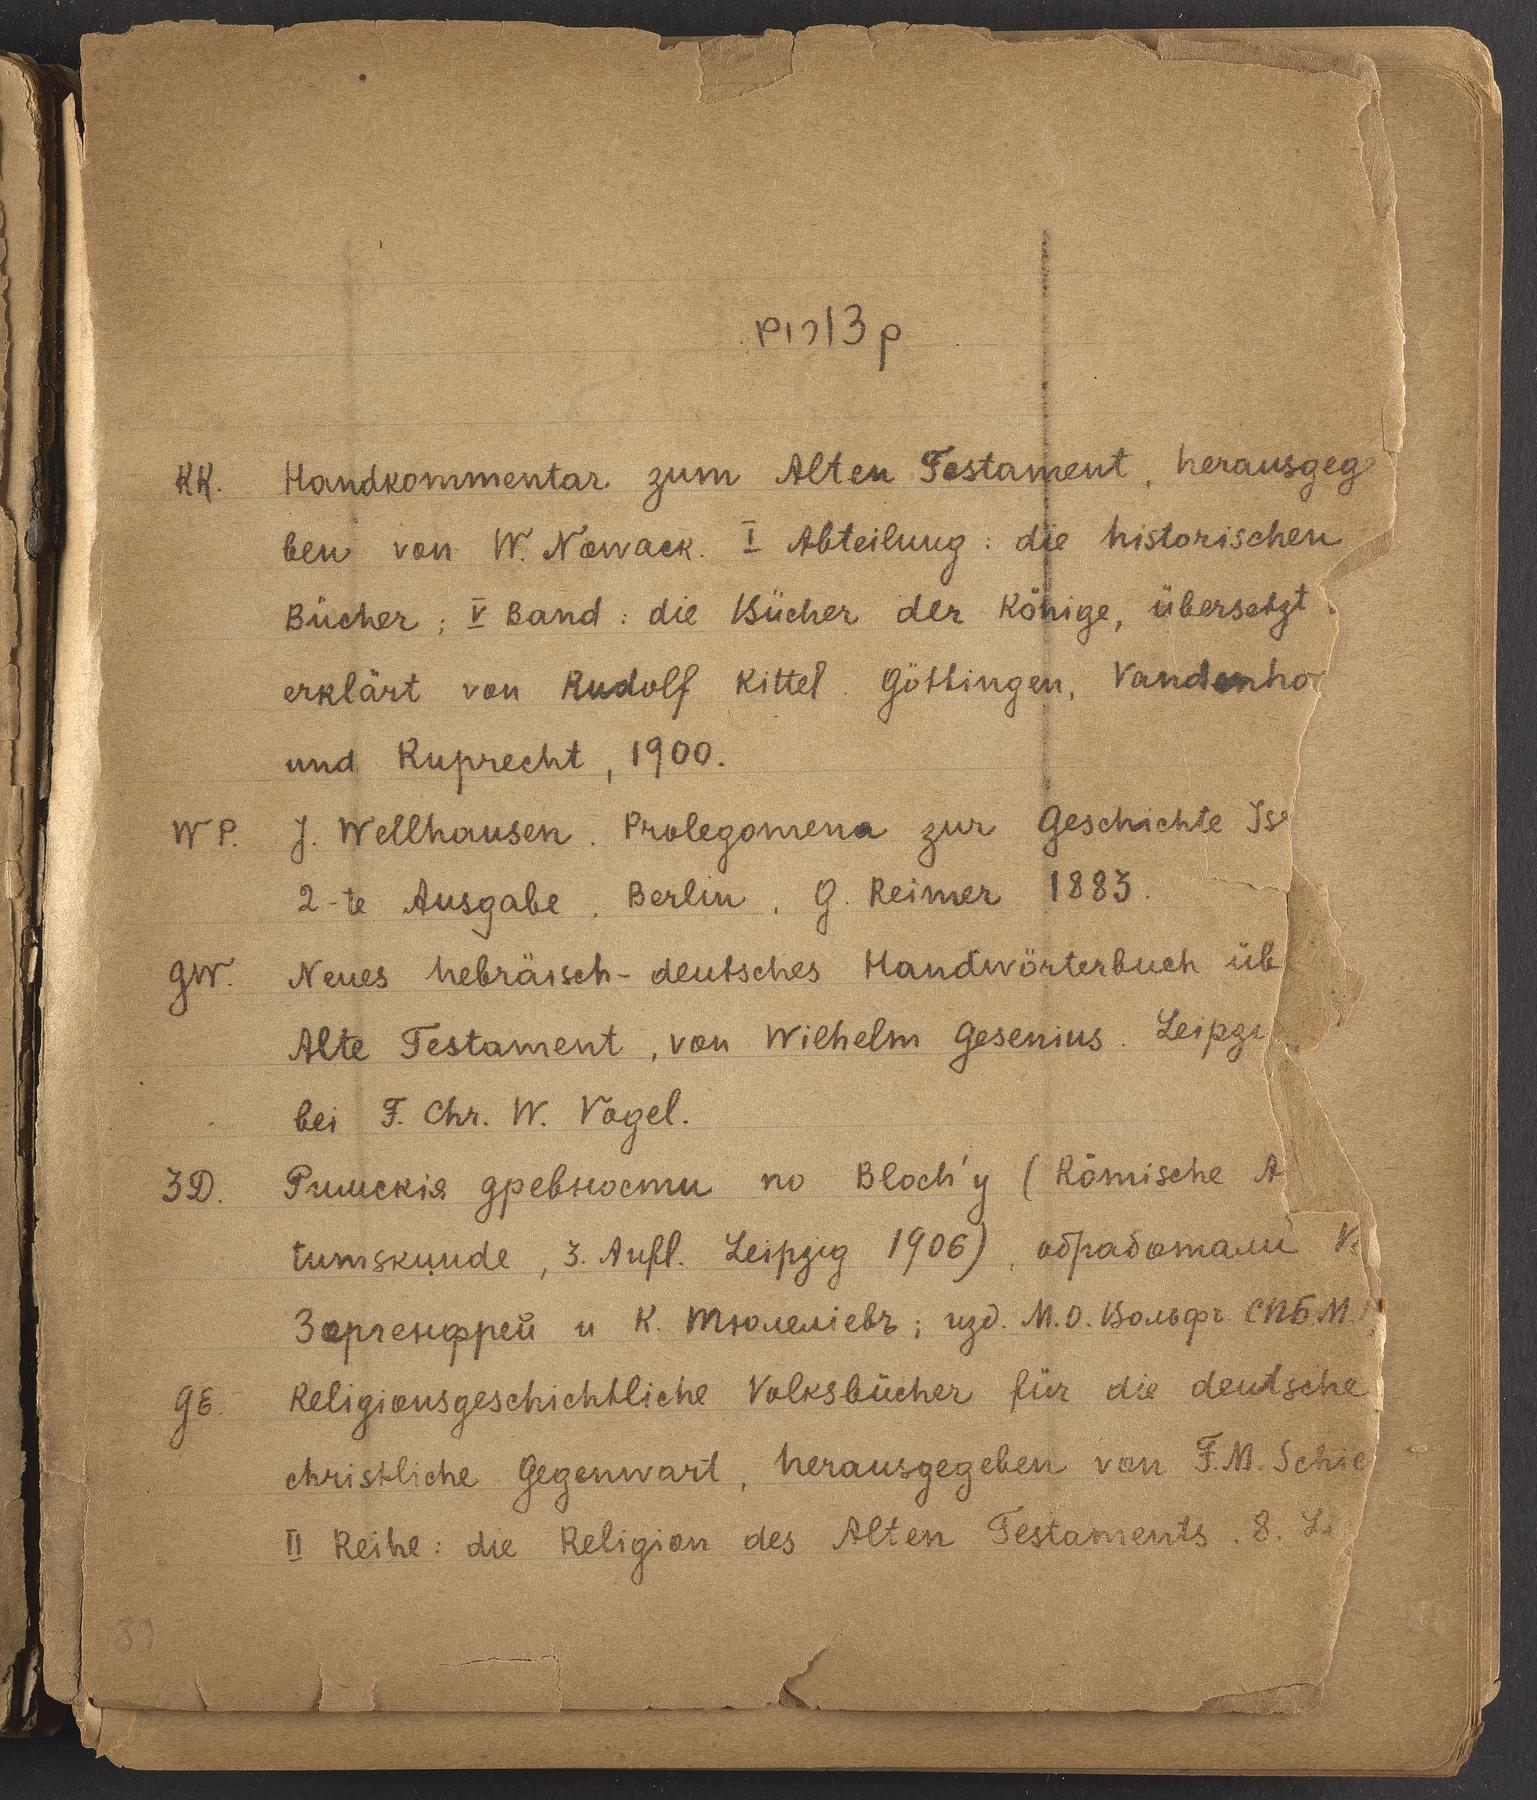 קצורים
KK. Handkommentar zum Alten Testament, herausgege
ben von W. Nowack. I Abteilung: die historischen
Bücher; V Band: die Bücher der Könige, übersetzt
erklärt von Rudolf Kittel. Göttingen, Vandenho
und Ruprecht, 1900.
WP. J. Wellhausen. Prolegomena zur Geschichte Is
2-te Ausgabe. Berlin, G. Reimer 1883.
GW. Neues hebräisch-deutsches Handwörterbuch üb
Alte Testament, von Wilhelm Gesenius. Leipzi
bei F. Chr. W. Vogel.
ЗД. Римскія древности по Bloch'у (Römische A
tumskunde, 3. Aufl. Leipzig 1906), обработали
Зоргенфрей и К. Тюлеліевъ; изд. М.О. Вольфъ СПБ М.
GE. Religionsgeschichtliche Volksbücher für die deutsche
christliche Gegenwart, herausgegeben von F.M. Schie
II Reihe: die Religion des Alten Testaments. 8.